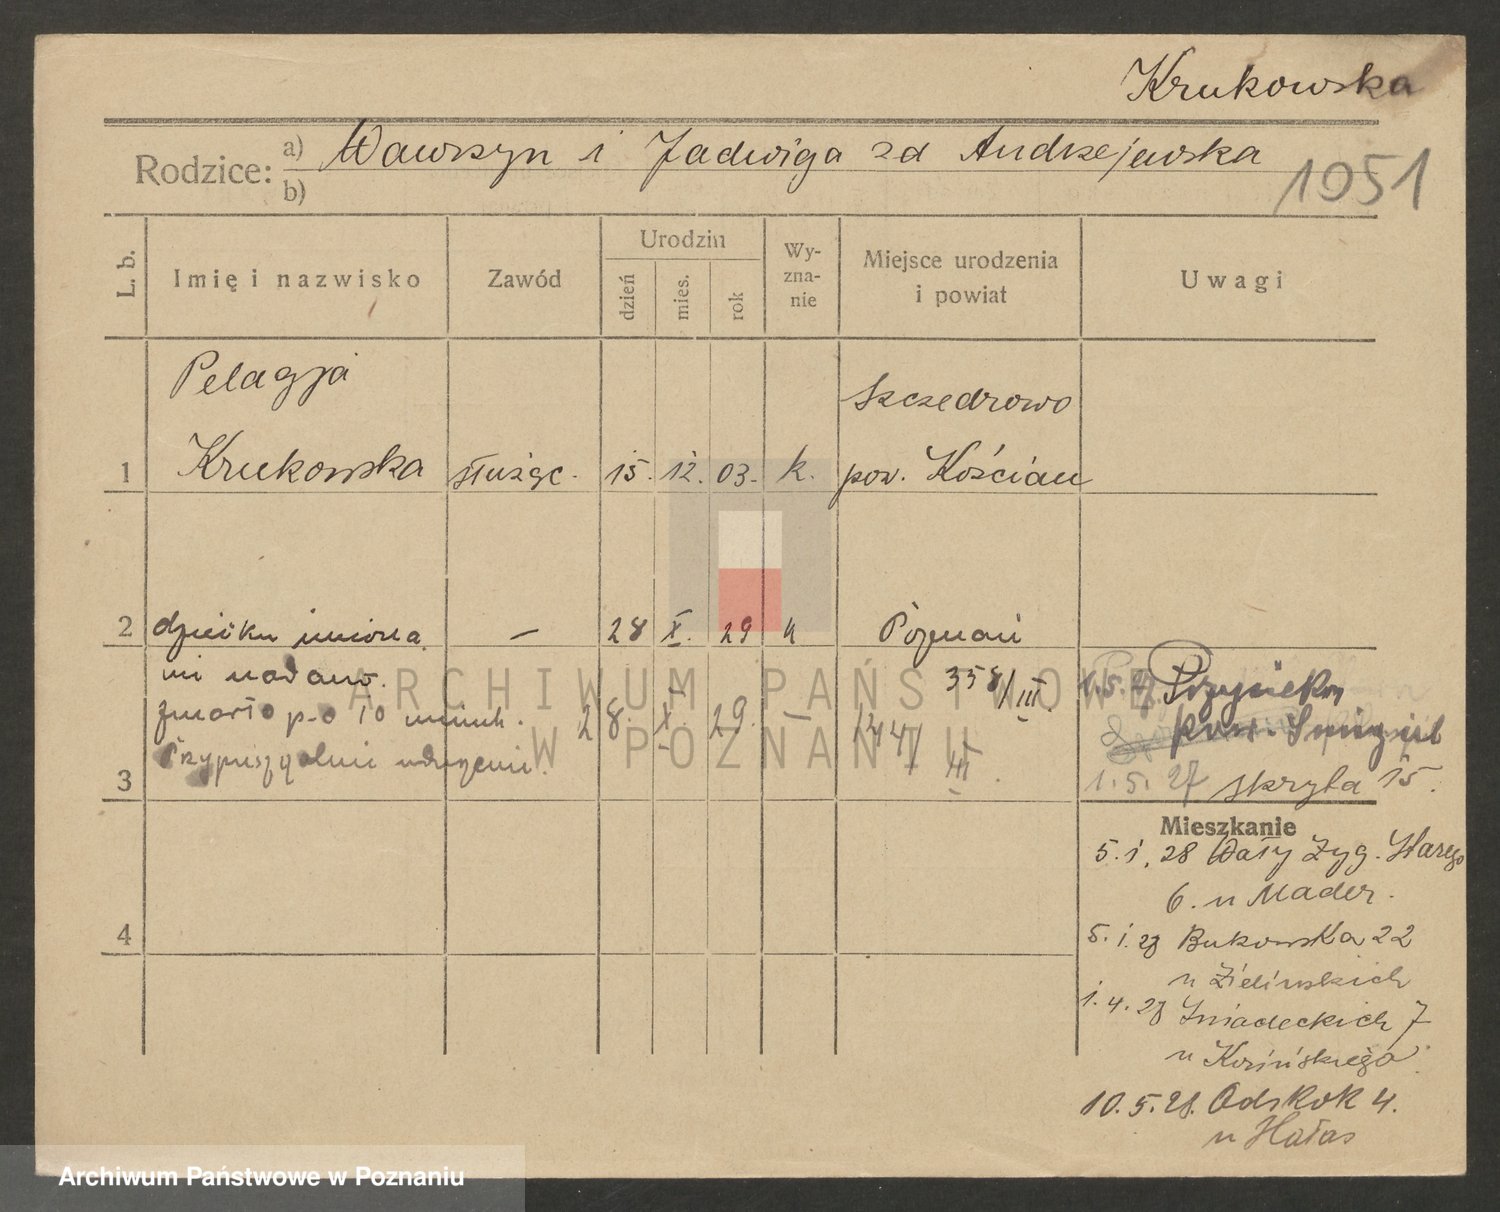 Krukowska
Rodzice: a) Wawrzyn i Jadwiga zd Andrzejewska
b)
1051
L. b.
Imię i nazwisko
Zawód
Urodzin
dzień
mies.
rok
Wy-
zna-
nie
Miejsce urodzenia
i powiat
Uwagi
Pelagja
Szczedrowo
1 Krukowska służąc. 15. 12. 03. k. pow. Kościan
2 dziecku imiona — 28 X. 29 k Poznań
ni nadano.
358/III.
1.5.27. Przysieka
zmarło p-o 10 minut. 28. X. 29. — 1244/III.
pow. Śmigiel
Przypuszczalni
1.5.27 skryta 15.
3
Mieszkanie
5.1.28 Wały Zyg. Starego
6. u Mader.
4
5.1.28 Bukowska 22
u Zielinskich
1.4.28 Śniadeckich 7
u
10.5.28. Odskok 4.
u Hałas
ARCHIWUM PAŃSTWOWE
W POZNANIU
Archiwum Państwowe w Poznaniu